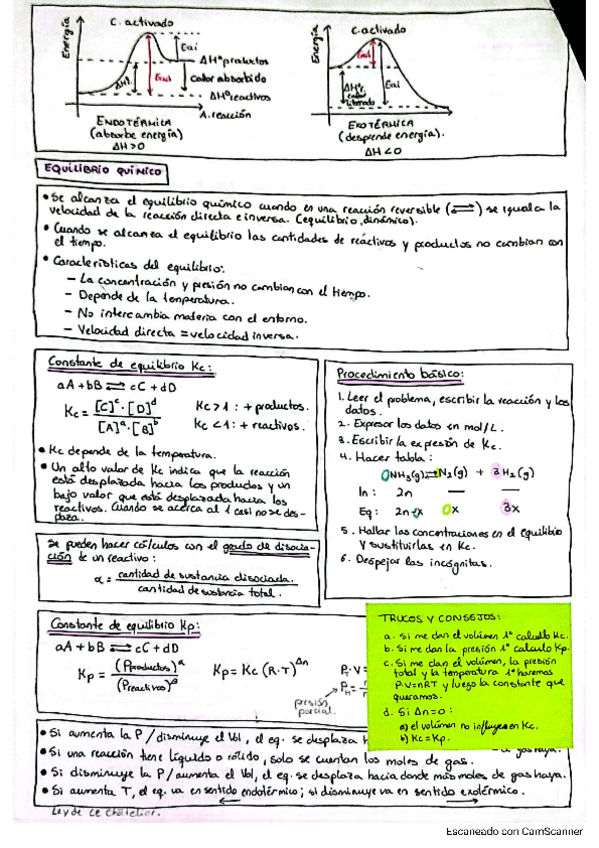 Energía
C. activado
Eai
Ead
ΔHº productos
calor absorbido
ΔHºr
ΔHº reactivos
A. reacción
ENDOTÉRMICA
(absorbe energía)
ΔH>0
Energía
C. activado
Ead
Eai
ΔHºr
calor
liberado
EXOTÉRMICA
(desprende energía).
ΔH<0
EQUILIBRIO QUÍMICO
• Se alcanza el equilibrio químico cuando en una reacción reversible (⇌) se iguala la
velocidad de la reacción directa e inversa. (equilibrio dinámico).
• Cuando se alcanza el equilibrio las cantidades de reactivos y productos no cambian con
el tiempo.
• Características del equilibrio:
– La concentración y presión no cambian con el tiempo.
– Depende de la temperatura.
– No intercambia materia con el entorno.
– Velocidad directa = velocidad inversa.
Constante de equilibrio Kc:
aA + bB ⇌ cC + dD
Kc = [C]^c · [D]^d / [A]^a · [B]^b
Kc > 1 : + productos.
Kc < 1 : + reactivos.
• Kc depende de la temperatura.
• Un alto valor de Kc indica que la reacción
está desplazada hacia los productos y un
bajo valor que está desplazada hacia los
reactivos. Cuando se acerca al 1 casi no se des-
plaza.
Se pueden hacer cálculos con el grado de disocia-
ción de un reactivo:
α = cantidad de sustancia disociada. / cantidad de sustancia total.
Procedimiento básico:
1. Leer el problema, escribir la reacción y los
datos.
2. Expresar los datos en mol/L.
3. Escribir la expresión de Kc.
4. Hacer tabla:
NH3(g) ⇌ N2(g) + 3H2(g)
In: 2n — —
Eq: 2n-x x 3x
5. Hallar las concentraciones en el equilibrio
y sustituirlas en Kc.
6. Despejar las incógnitas.
Constante de equilibrio Kp:
aA + bB ⇌ cC + dD
Kp = (Pproductos) / (Preactivos)
Kp = Kc (R·T)^Δn
presión
parcial.
TRUCOS Y CONSEJOS:
a. Si me dan el volúmen 1º calculo Kc.
b. Si me dan la presión 1º calculo Kp.
c. Si me dan el volúmen, la presión
total y la temperatura 1º haremos
P·V=nRT y luego la constante que
queramos.
d. Si Δn=0 :
a) el volúmen no influye en Kc.
b) Kc = Kp.
• Si aumenta la P / disminuye el Vol, el eq. se desplaza
• Si una reacción tiene líquido o sólido, solo se cuentan los moles de gas.
• Si disminuye la P / aumenta el Vol, el eq. se desplaza hacia donde más moles de gas haya.
• Si aumenta T, el eq. va en sentido endotérmico; si disminuye va en sentido exotérmico.
Ley de Le Chatelier.
Escaneado con CamScanner